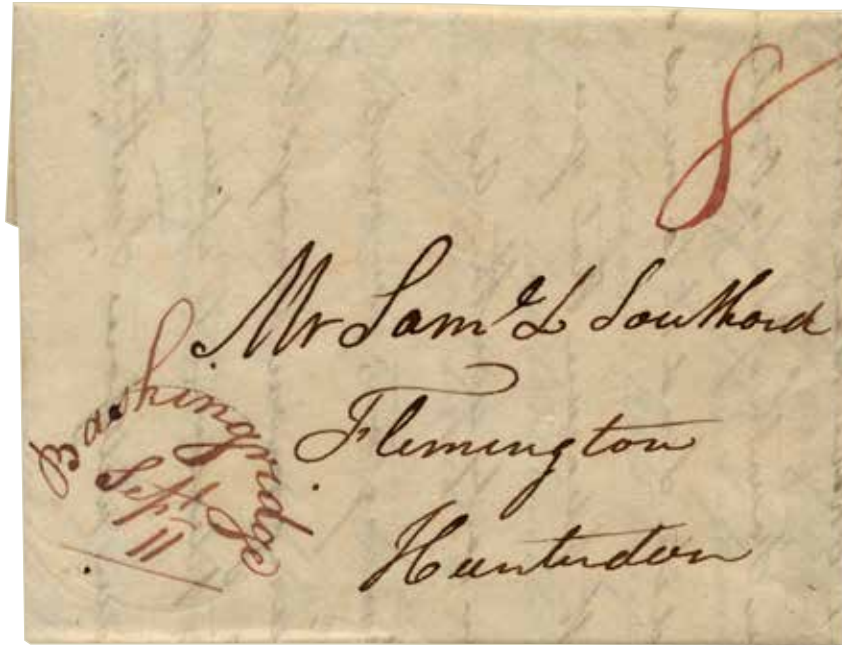 8
Mr Saml L Southard
Flemington
Hunterdon
Baskingridge
Sept
11